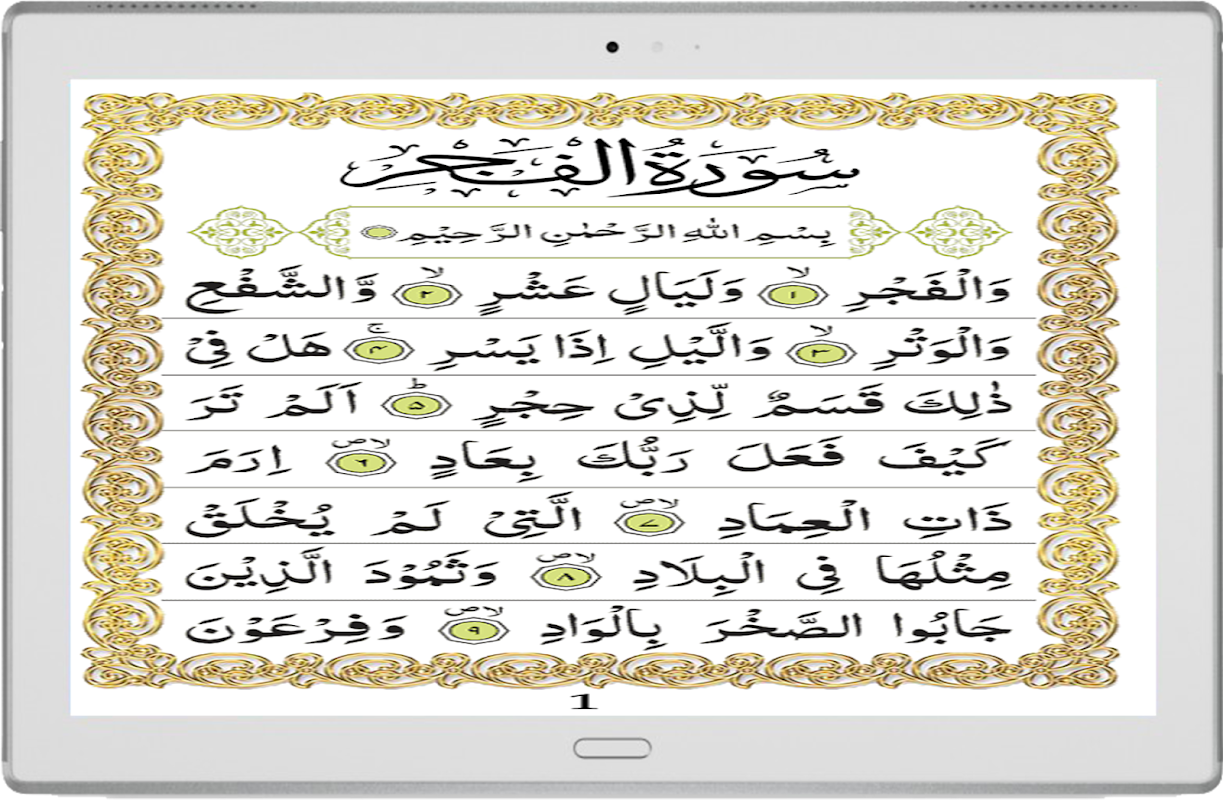 سُوْرَةُ الْفَجْرِ
بِسْمِ اللّٰهِ الرَّحْمٰنِ الرَّحِيْمِ
وَالْفَجْرِ ۙ﴿۱﴾ وَلَيَالٍ عَشْرٍ ۙ﴿۲﴾ وَّالشَّفْعِ
وَالْوَتْرِ ۙ﴿۳﴾ وَالَّيْلِ اِذَا يَسْرِ ۚ﴿۴﴾ هَلْ فِيْ
ذٰلِكَ قَسَمٌ لِّذِيْ حِجْرٍ ؕ﴿۵﴾ اَلَمْ تَرَ
كَيْفَ فَعَلَ رَبُّكَ بِعَادٍ ۪ۙ﴿۶﴾ اِرَمَ
ذَاتِ الْعِمَادِ ۪ۙ﴿۷﴾ الَّتِيْ لَمْ يُخْلَقْ
مِثْلُهَا فِي الْبِلَادِ ۪ۙ﴿۸﴾ وَثَمُوْدَ الَّذِيْنَ
جَابُوا الصَّخْرَ بِالْوَادِ ۪ۙ﴿۹﴾ وَفِرْعَوْنَ
1